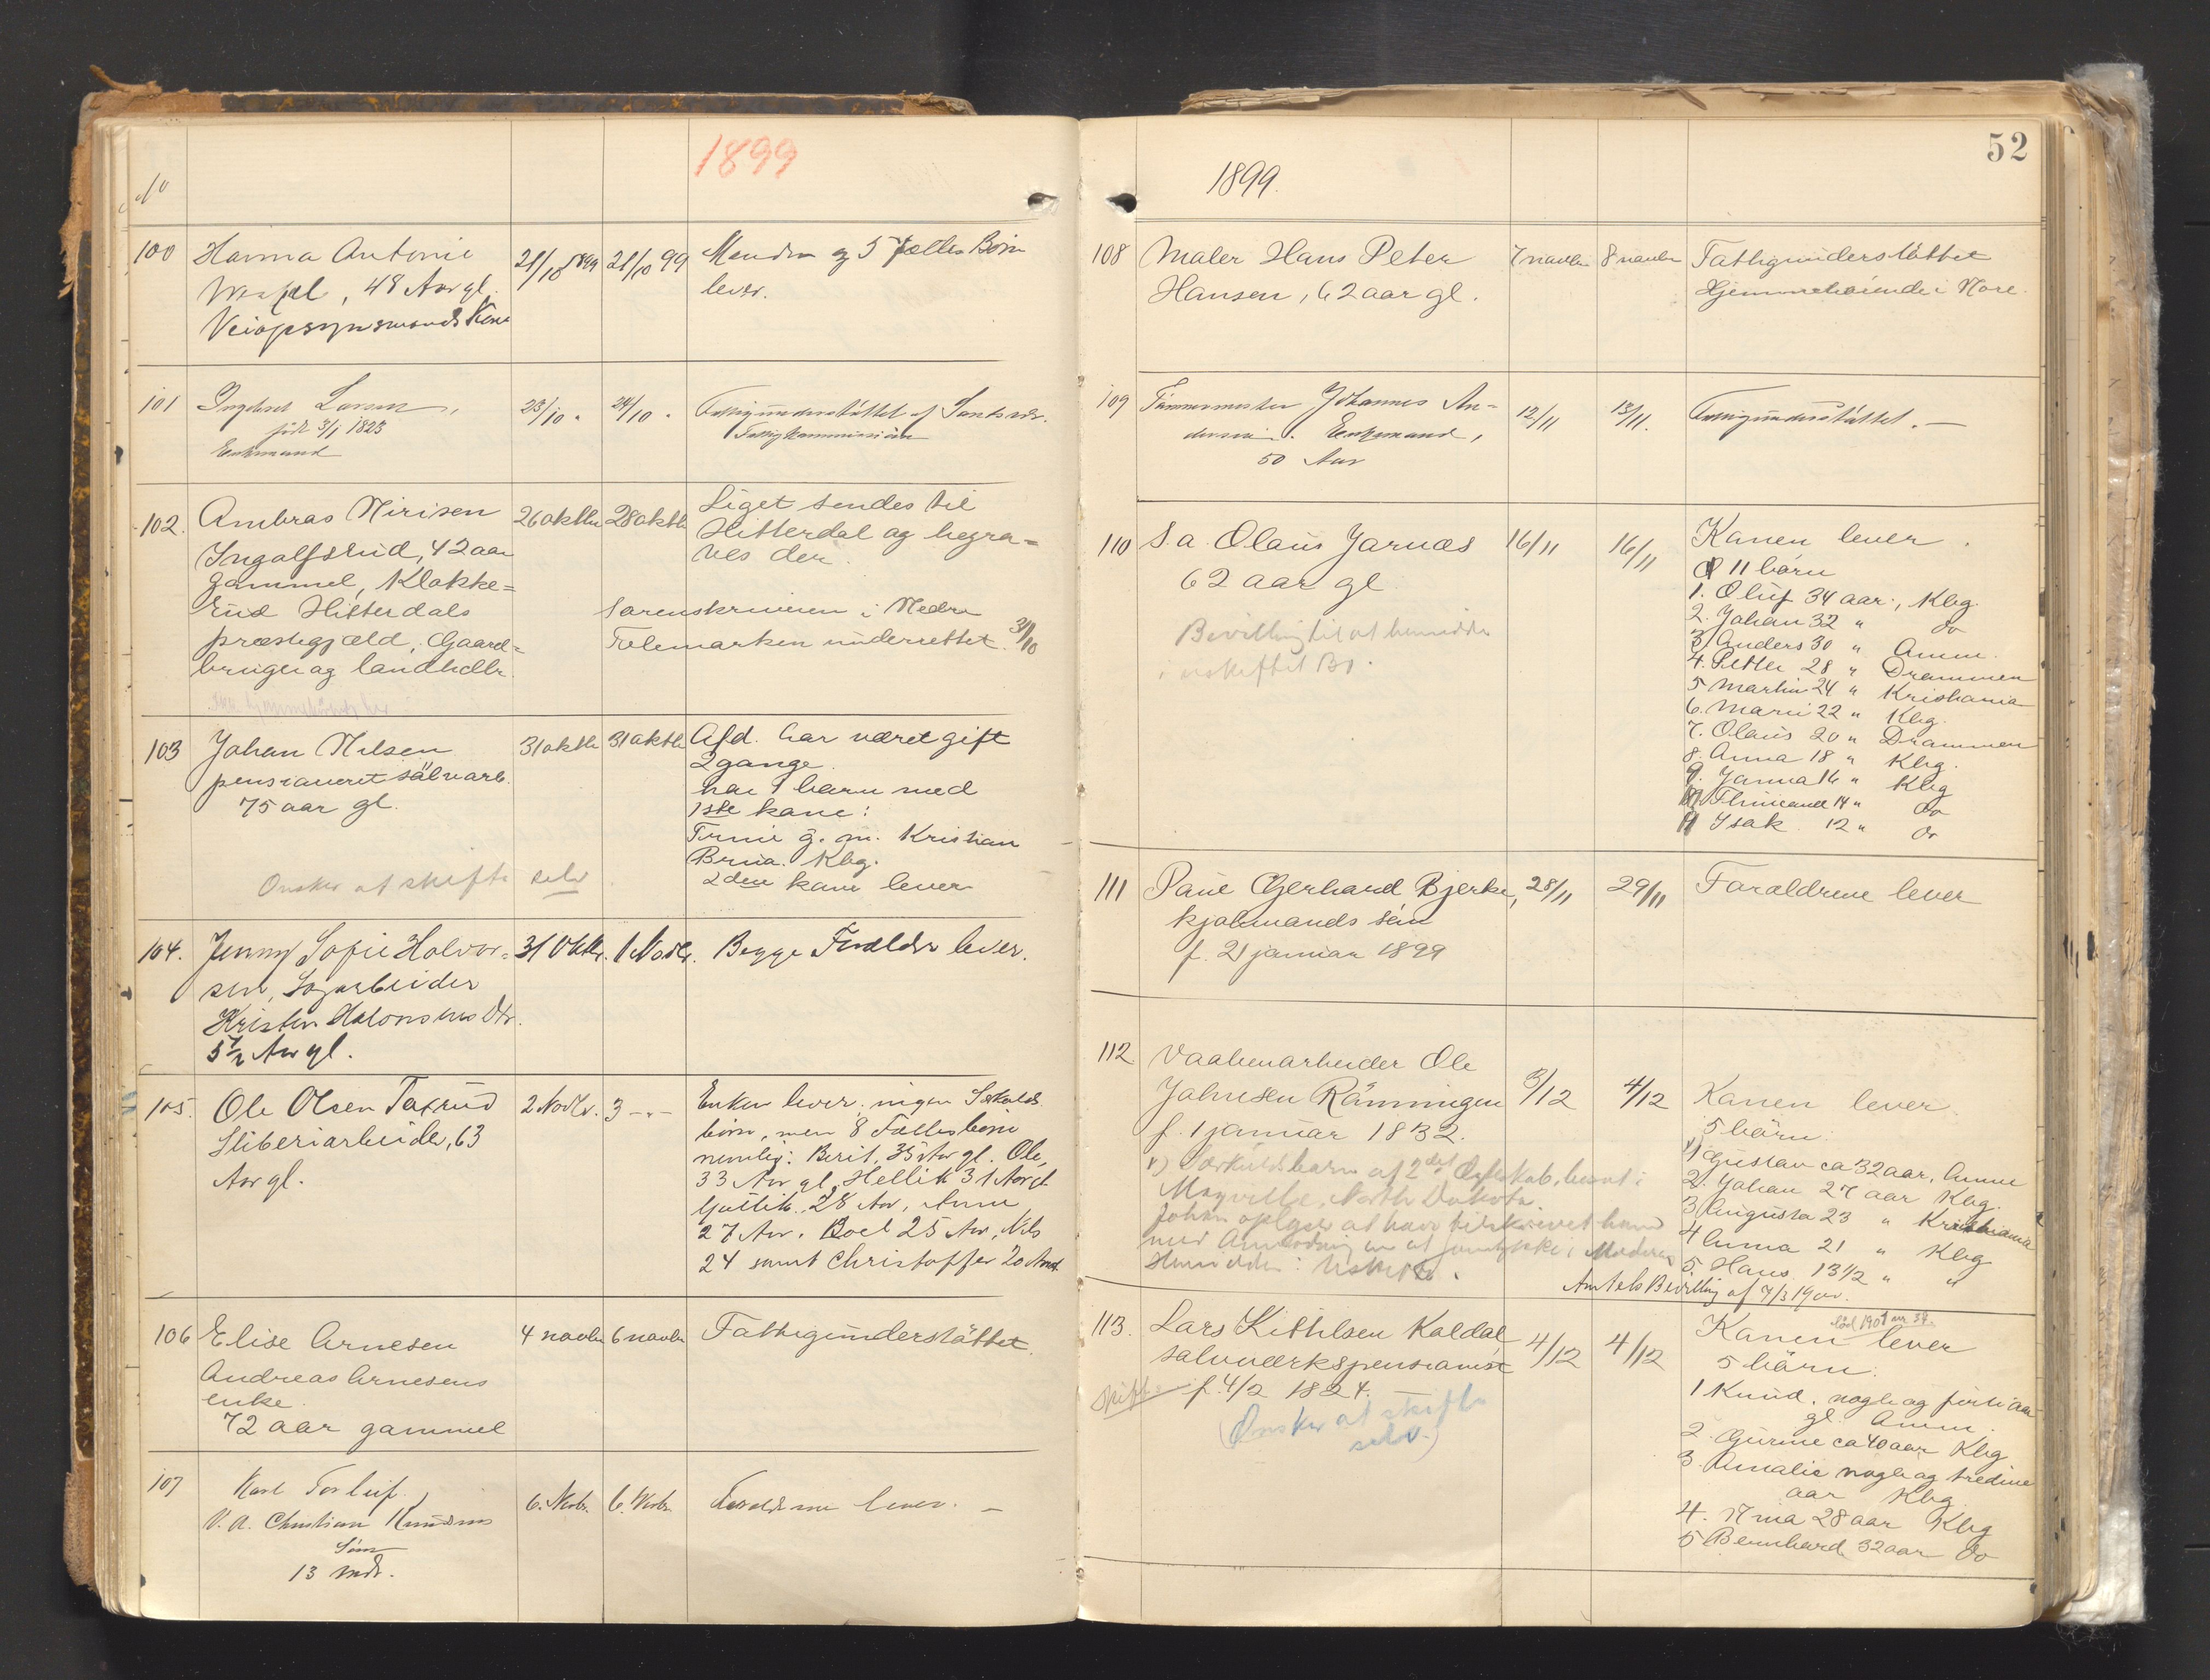 1899
No
100 Hanna Antonie
48 Aar gl.
Veiopsynsmands Kone
21/10 1899 21/10 99
Manden og 5 fælles Børn
lever.
101 Ingebret Larsen,
født 3/1 1823
Enkemand
23/10 „ 24/10 „
Fattigunderstøttet af Sandsvær
Fattigkommission
102. Ambros Nirisen
Ingolfsrud, 42 aar
gammel, Klokke=
rud Hitterdals
præstegjæld, Gaard=
bruger og landhdlr.
Ikke hjemmehørende her
26 oktbr 28 oktbr
Liget sendes til
Hitterdal og begra=
ves der.
Sorenskriveren i Nedre
Telemarken underrettet. 31/10
103 Johan Nilsen
pensioneret sølvarb.
75 aar gl.
Ønsker at skifte selv
31 oktbr 31 oktbr
Afd. har været gift
2 gange.
har 1 barn med
1ste kone:
g. m. Kristian
Brua. Kbg.
2den kone lever
104. Jenny Sofie Halvor=
sen, Sagarbeider
Kristen Halvorsens Dtr.
5 1/2 Aar gl.
31 Oktbr. 1 Novbr.
Begge Forældre lever.
105. Ole Olsen Taxrud
Sliberiarbeider, 63
Aar gl.
2 Novbr. 3 -„-
Enken lever, ingen Særkulds
børn, men 8 Fælles børn
nemlig: Berit, 35 Aar gl. Ole,
33 Aar gl, Hellik 31 Aar gl.
Gullik, 28 Aar, Anne
27 Aar, Boel 25 Aar, Nils
24 samt Christoffer 20 Aar
106 Elise Arnesen
Andreas Arnesens
enke.
72 aar gammel
4 novbr 6 novbr
Fattigunderstøttet.
107 Karl Torleif,
V. A. Christian Knudsens
Søn
13 Mdr.
6. Novbr. 6. Novbr.
Forældrene lever. —
52
1899.
108 Maler Hans Peter
Hansen, 62 aar gl.
7 novbr 8 novbr
Fattigunderstøttet
Hjemmehørende i Nore.
109 Tømmermester Johannes An=
dersen. Enkemand,
50 Aar
12/11 13/11.
Fattigunderstøttet. —
110 S.a. Olaus Jarnæs
62 aar gl.
Bevilling til at hensidde
i uskiftet Bo.
16/11 16/11
Konen lever.
11 børn
1. Oluf 34 aar, Kbg.
2. Johan 32 „ do
3. Anders 30 „ Amm.
4. Petter 28 „ Drammen
5 Martin 24 „ Kristiania
6. Marie 22 „ Kbg.
7. Olaus 20 „ Drammen
8. Anna 18 „ Kbg.
9. Janna 16 „ Kbg
14 „ do
11 Isak 12 „ do
111 Paul Gerhard Bjerke,
kjøbmands søn
f. 21 januar 1899
28/11 29/11
Forældrene lever
112 Vaabenarbeider Ole
Johnsen Rønningen
f. 1 januar 1832.
3/12 4/12
Konen lever.
5 børn:
1) Gustav ca 32 aar, Amm
2. Johan 27 aar Kbg.
3 Augusta 23 „ Kristiania
4 Anna 21 „ Kbg
5. Hans 13 1/2 „ „
1) Særkuldsbarn af 2det Ægteskab, bosat i
Mayville, North Dakota.
Johan oplyser at have tilskrevet ham
med Anmodning om at samtykke i Moderens
Hensidden i uskiftet Bo.
Amtets Bevilling af 7/3 1900.
113. Lars Kittilsen Koldal
sølvværkspensionist
f. 4/2 1824.
Skifte
(Ønsker at skifte
selv.)
4/12 4/12
død 1901
Konen lever
5 børn:
1 Knud, nogle og førti aar
gl. Amm.
2. Gurine ca 40 aar Kbg
3. Amalie nogle og tredive
aar Kbg.
4. 28 aar Kbg
5 Bernhard 32 aar do